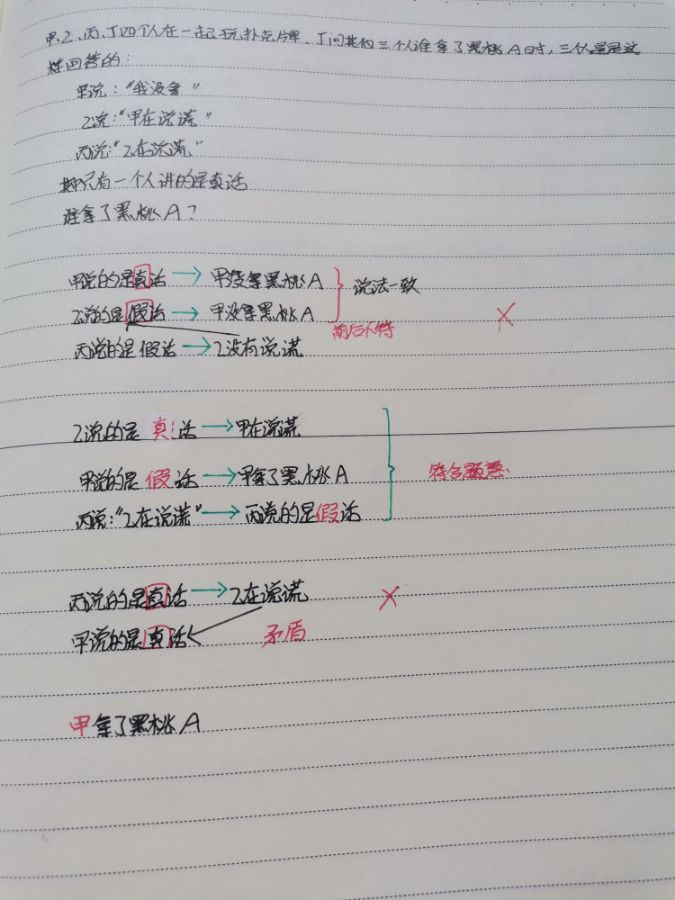 甲、乙、丙、丁四个人在一起玩扑克牌、丁问其他三个人谁拿了黑桃A时，三个人是这
样回答的：
甲说："我没拿"
乙说："甲在说谎"
丙说："乙在说谎"
只有一个人讲的是真话
谁拿了黑桃A？
甲说的是真话→甲没拿黑桃A
说法一致
乙说的是假话→甲没拿黑桃A
前后不符
丙说的是假话→乙没有说谎
乙说的是真话→甲在说谎
甲说的是假话→甲拿了黑桃A
符合题意.
丙说："乙在说谎"→丙说的是假话
丙说的是真话→乙在说谎
甲说的是真话
矛盾
甲拿了黑桃A